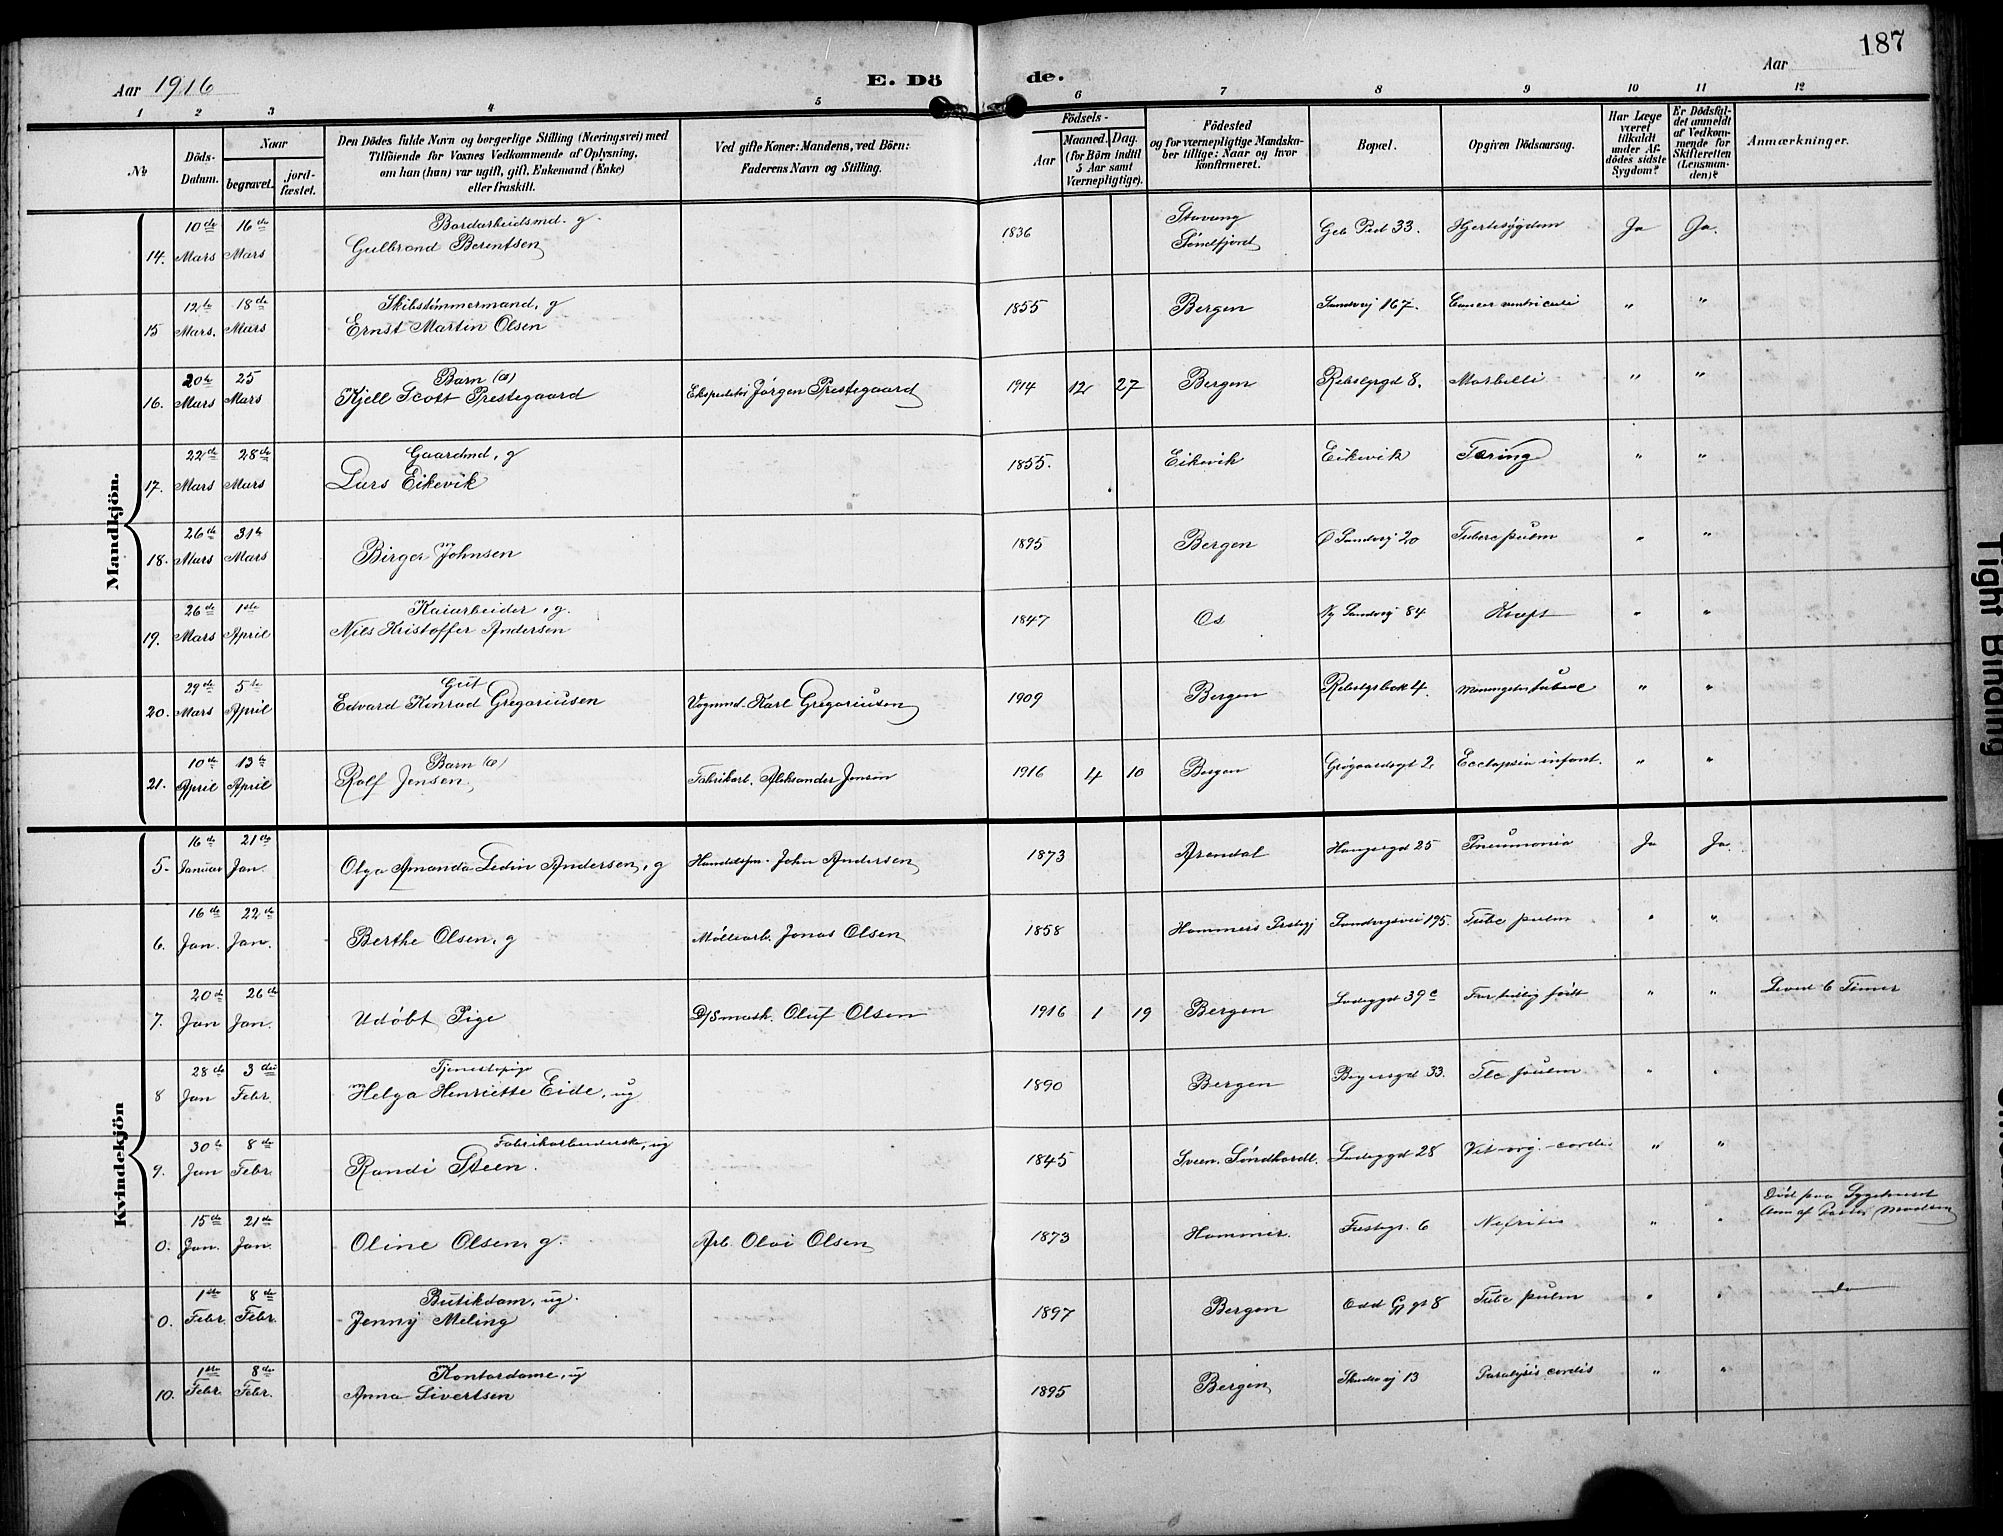 187
Aar 1916
E. Dö
de.
Aar
1 2 3 4 5 6 7 8 9 10 11 12
№
Döds-
Datum.
Naar
begravet.
jord-
fæstet.
Den Dödes fulde Navn og borgerlige Stilling (Næringsvei) med
Tilföiende for Voxnes Vedkommende af Oplysning,
om han (hun) var ugift, gift, Enkemand (Enke)
eller fraskilt.
Ved gifte Koner: Mandens, ved Börn:
Faderens Navn og Stilling.
Födsels-
Aar
Maaned. Dag.
(for Börn indtil
5 Aar samt
Værnepligtige).
Födested
og for værnepligtige Mandska-
ber tillige: Naar og hvor
konfirmeret.
Bopæl.
Opgiven Dödsaarsag.
Har Læge
været
tilkaldt
under Af-
dödes sidste
Sygdom?
Er Dödsfal-
det anmeldt
af Vedkom-
mende for
Skifteretten
(Lensman-
den)?
Anmærkninger.
Mandkjön.
10de 16de Bordarbeidsmd. g. Stavang
14. Mars Mars Gulbrand Berentsen 1836 Söndfjord 33. Hjertesygdom Ja Ja.
12te 18de Skibstömmermand, g
15 Mars. Mars Ernst Martin Olsen 1855 Bergen Sandvej 167. Cancer ventriculi " "
20de 25 Barn (æ)
16. Mars Mars Kjell Scott Prestegaard Ekspeditör Jørgen Prestegaard 1914 12 27 Bergen 8. Morbilli " "
22de 28de Gaardmd, g
17. Mars Mars Lars Eikevik 1855. Eikevik Eikevik Tæring " "
26de 31te
18. Mars Mars Birger Johnsen 1895 Bergen Ø Sandvej 20 Tuberc pulm " "
26de 1ste Kaiarbeider, g.
19. Mars April Nils Kristoffer Andersen 1847 Os Ny Sandvej 84 Kræft " "
29de 5te Gut
20. Mars April Edvard Konrad Gregoriussen Vognmd. Karl Gregoriusen 1909 Bergen 4. " "
10de 13te Barn (æ)
21. April April Rolf Jensen Fabrikarb. Aleksander Jensen 1916 4 10 Bergen Grögaardsgt 2. infant. " "
Kvindekjön
16de 21de
5. Januar Jan. Olga Amanda Andersen, g John Andersen 1873 Arendal Haugesgd 25 Pneumonia Ja Ja.
16de 22de
6. Jan. Jan. Berthe Olsen, g Møllearb. Jonas Olsen 1858 Hammers Prestgj Sandvigsvei 195. Tubc pulm " "
20de 26de
7. Jan Jan. Udøbt Pige D/Smask. Oluf Olsen 1916 1 19 Bergen Ladeggd 39c For tidlig født " " Leved 6 Timer
28de 3die Tjenestepige
8 Jan Febr. Helga Henriette Eide, ug 1890 Bergen 33. Tbc pulm " "
30te 8de Fabrikarbeiderske, ug
9. Jan Febr. Randi Steen. 1845 Sveen. Söndhordl. Ladeggd 28 Vit. org. cordis " "
15de 21de Död paa Sygehuset
0. Jan. Jan. Oline Olsen, g. Arb. Olai Olsen 1873 Hammer. 6 Nefritis " "
1ste 8de Butikdam, ug.
0. Febr. Febr. Jenny Meling 1897 Bergen 8 Tubc pulm " " do
1ste 8de Kontordame, ug
10. Febr. Febr. Anna Sivertsen 1895 Bergen 13 Paralysis cordis " "
Tight Binding